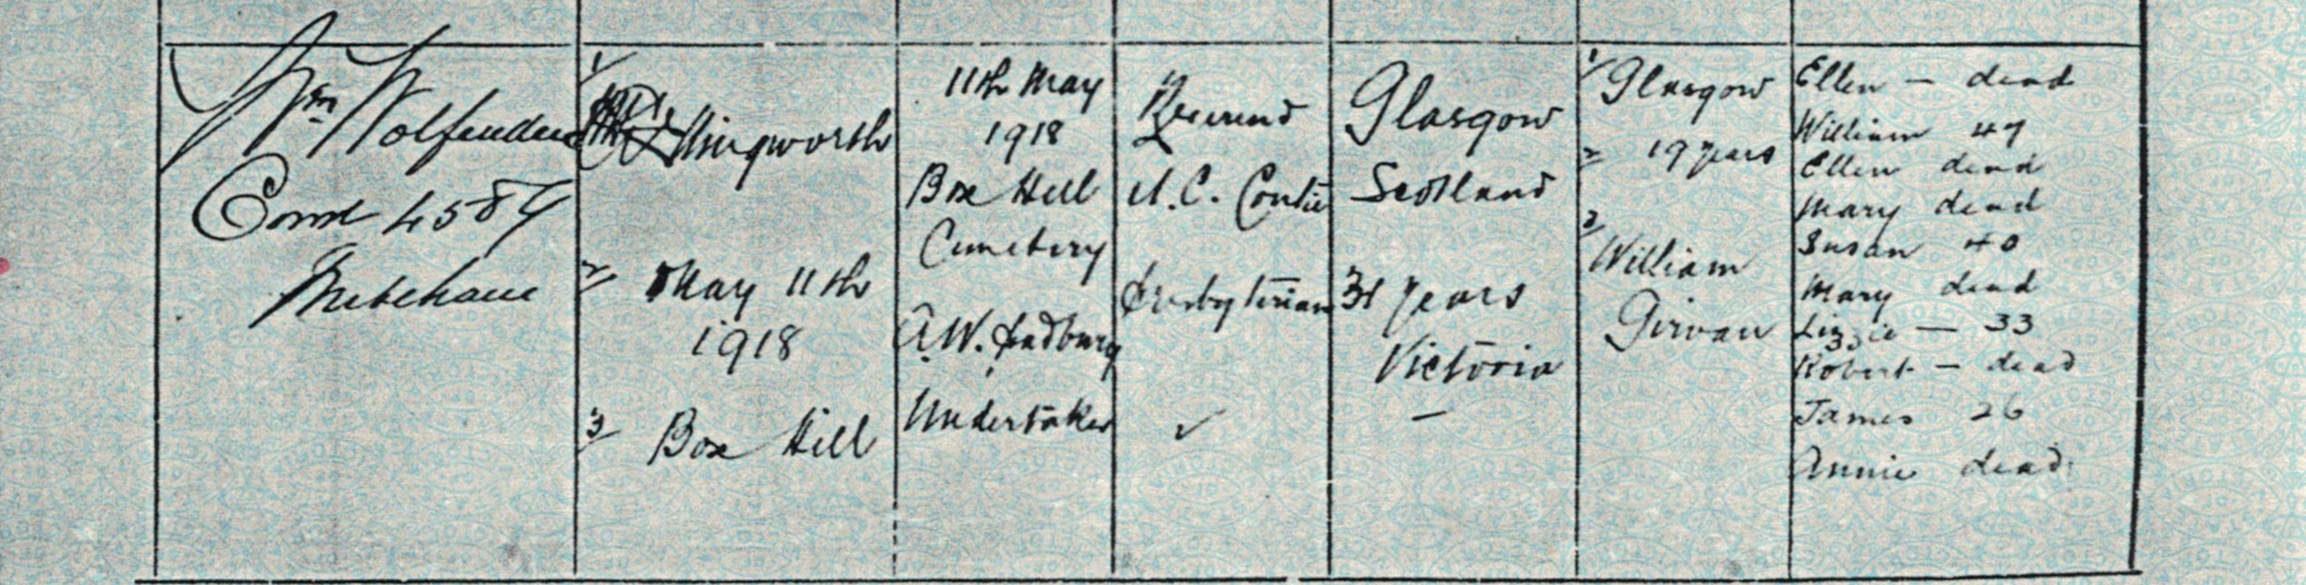 Wm Wolfenden
Const 4587
Mitcham
1/
Illingworth
2/ May 11th
1918
3/ Box Hill
11th May
1918
Box Hill
Cemetery
A.W. Padbury
Undertaker
Reverend
Presbyterian
✓
Glasgow
Scotland
31 years
Victoria
–
1/ Glasgow
2/ 19 years
3/
William
Girvan
Ellen – dead
William 47
Ellen dead
Mary dead
Susan 40
Mary dead
Lizzie – 33
Robert – dead
James 26
Annie dead